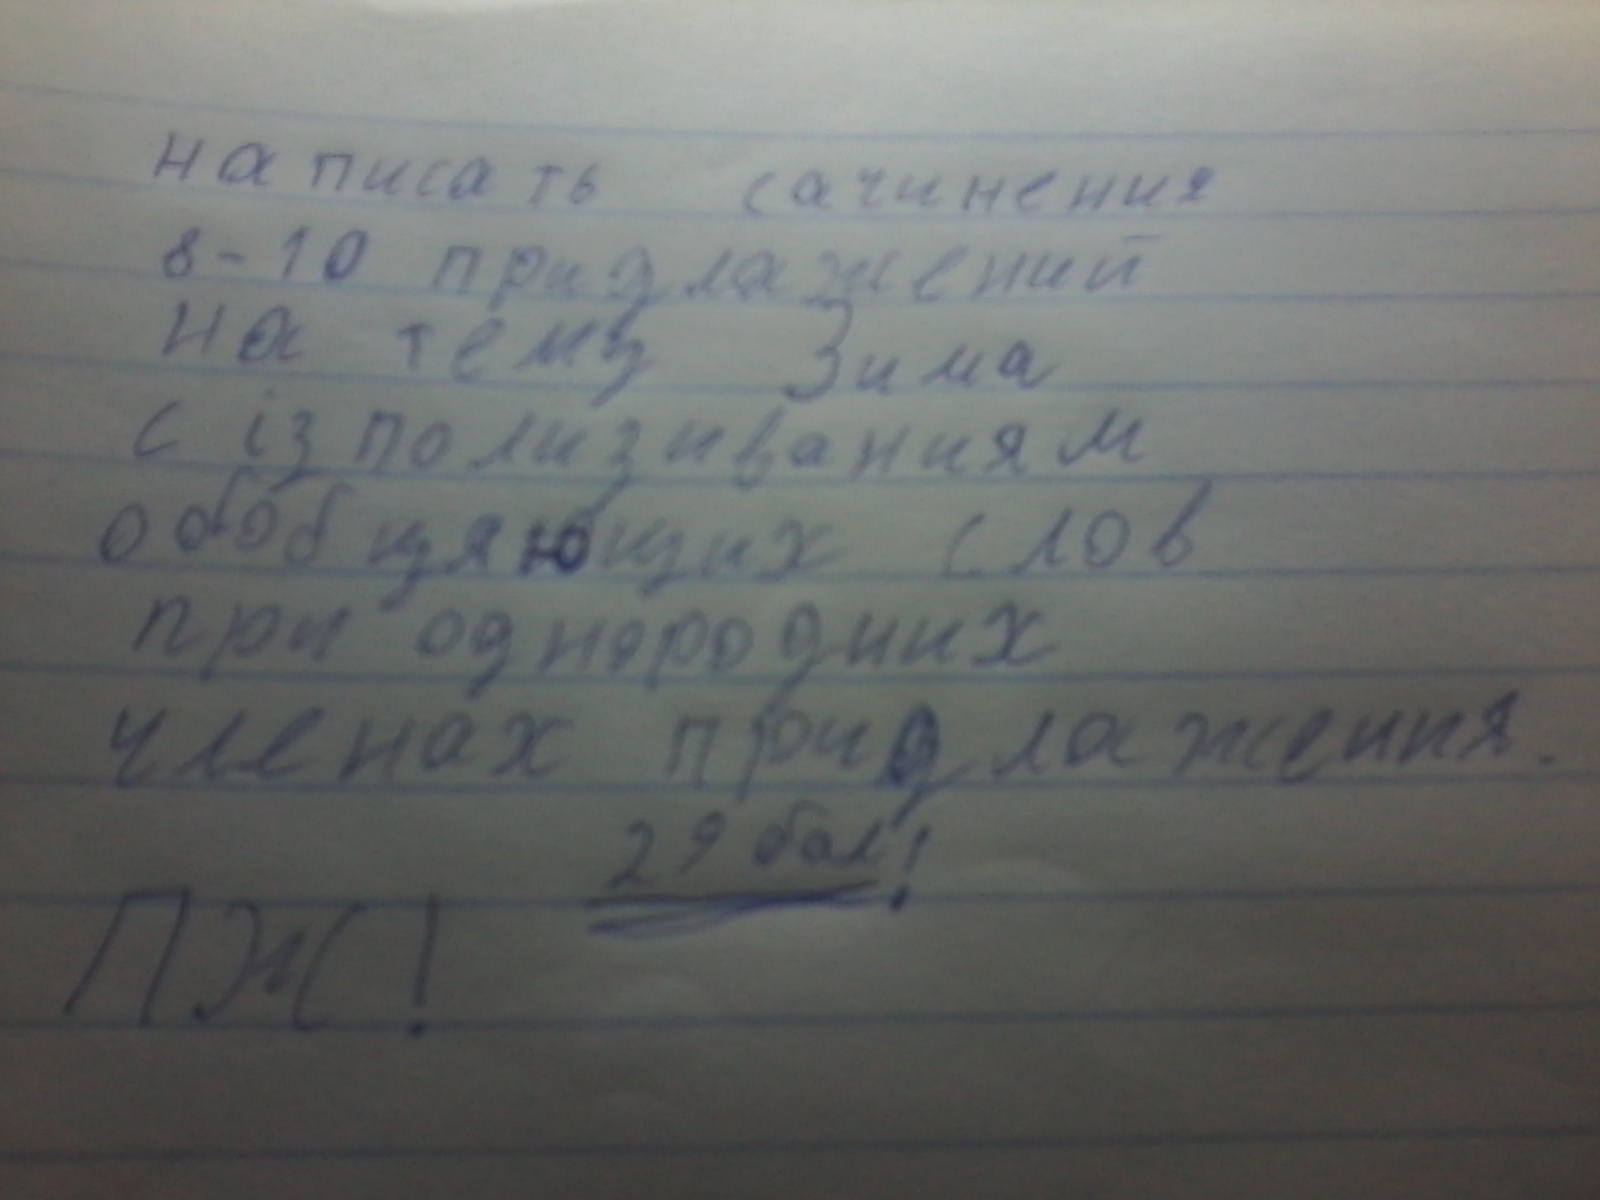 написать сачинения
8-10 придлажений
на тему Зима
с ізползиваниям
обобщяющих слов
при однородних
членах придлажения.
29 бал!
ПЖ!